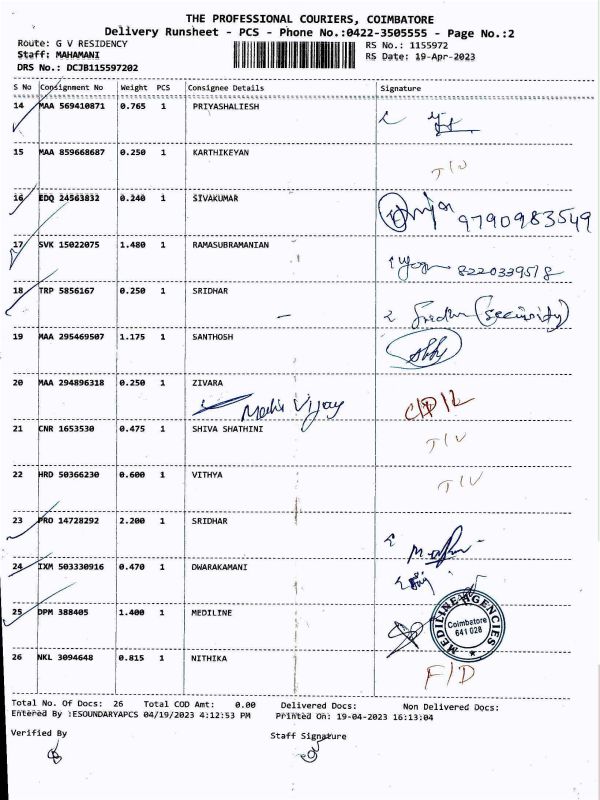 THE PROFESSIONAL COURIERS, COIMBATORE
Delivery Runsheet - PCS - Phone No.:0422-3505555 - Page No.:2
Route: G V RESIDENCY RS No.: 1155972
Staff: MAHAMANI RS Date: 19-Apr-2023
DRS No.: DCJB115597202
S No Consignment No Weight PCS Consignee Details Signature
14 MAA 569410871 0.765 1 PRIYASHALIESH
15 MAA 859668687 0.250 1 KARTHIKEYAN
16 EDQ 24563832 0.240 1 SIVAKUMAR
9790983549
17 SVK 15022075 1.480 1 RAMASUBRAMANIAN
8220339518
18 TRP 5856167 0.250 1 SRIDHAR
(security)
19 MAA 295469507 1.175 1 SANTHOSH
20 MAA 294896318 0.250 1 ZIVARA
Vijay
21 CNR 1653530 0.475 1 SHIVA SHATHINI
22 HRD 50366230 0.600 1 VITHYA
23 PRO 14728292 2.200 1 SRIDHAR
24 IXM 503330916 0.470 1 DWARAKAMANI
25 DPM 388405 1.400 1 MEDILINE
MEDILINE AGENCIES
Coimbatore
641 028
26 NKL 3094648 0.815 1 NITHIKA F/D
Total No. Of Docs: 26 Total COD Amt: 0.00 Delivered Docs: Non Delivered Docs:
Entered By :ESOUNDARYAPCS 04/19/2023 4:12:53 PM Printed On: 19-04-2023 16:13:04
Verified By Staff Signature